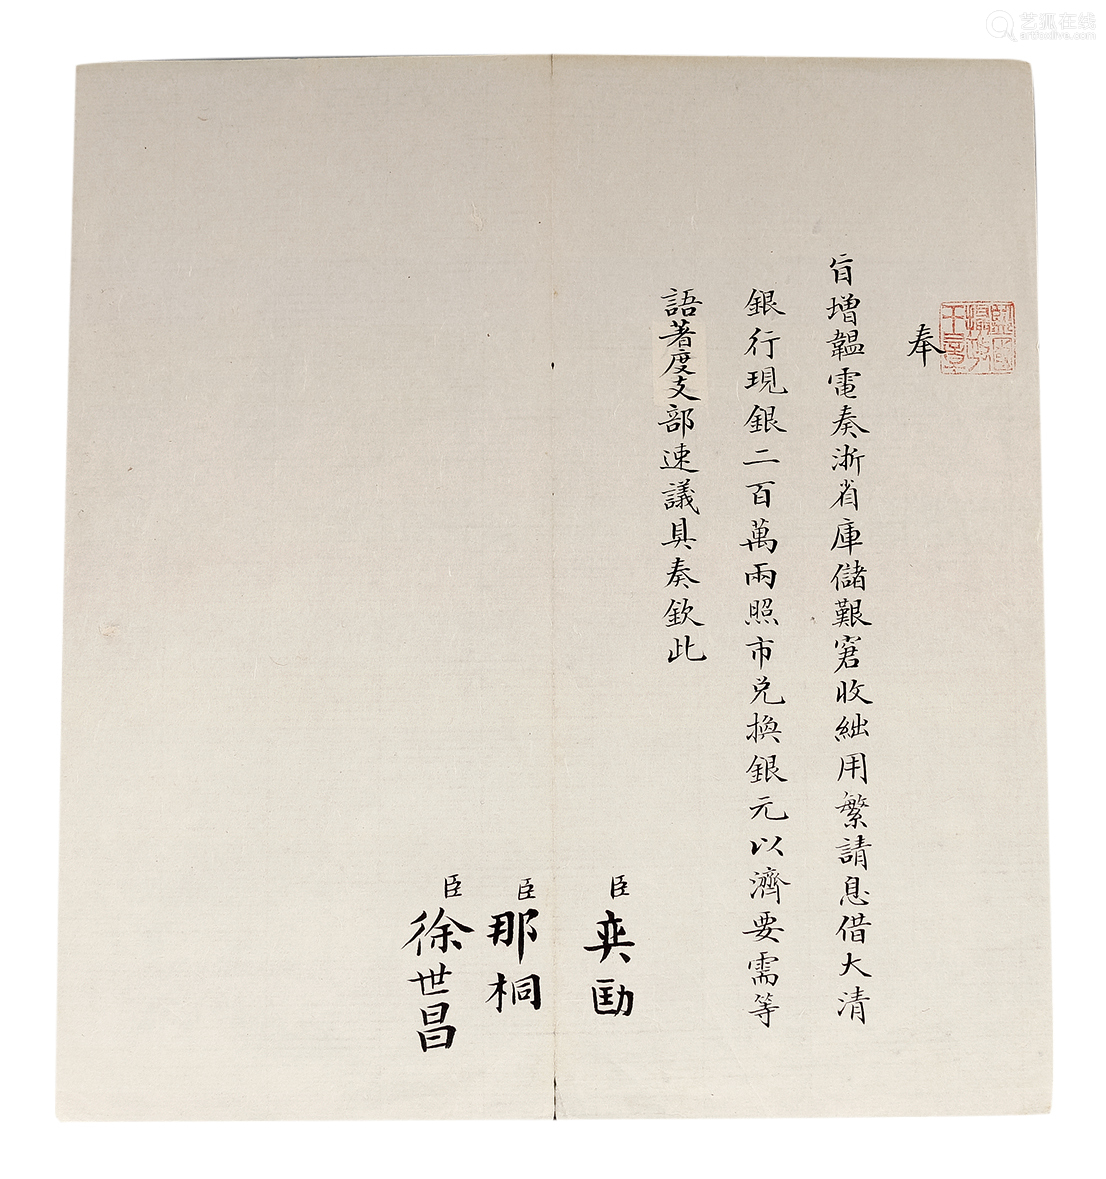 奉
旨增韞電奏浙省庫儲艱窘收絀用繁請息借大清
銀行現銀二百萬兩照市兌換銀元以濟要需等
語著度支部速議具奏欽此
臣奕劻
臣那桐
臣徐世昌
艺狐在线
artfoxlive.com